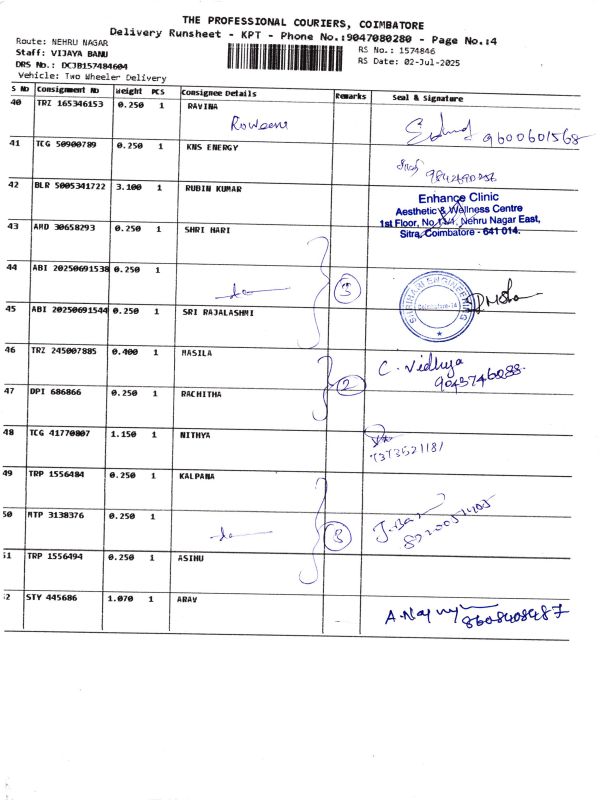 THE PROFESSIONAL COURIERS, COIMBATORE
Delivery Runsheet - KPT - Phone No.:9047080280 - Page No.:4
Route: NEHRU NAGAR
Staff: VIJAYA BANU
DRS No.: DCJB157484604
Vehicle: Two Wheeler Delivery
RS No.: 1574846
RS Date: 02-Jul-2025
S No Consignment No Weight PCS Consignee Details Remarks Seal & Signature
40 TRZ 165346153 0.250 1 RAVINA
Roweena 9600601568
41 TCG 50900789 0.250 1 KNS ENERGY
42 BLR 5005341722 3.100 1 RUBIN KUMAR
Enhance Clinic
Aesthetic & Wellness Centre
1st Floor, No Nehru Nagar East,
Sitra, Coimbatore - 641 014.
43 AMD 30658293 0.250 1 SHRI HARI
44 ABI 20250691538 0.250 1
3
SHRIHARI ENGINEERING
Coimbatore-14
45 ABI 20250691544 0.250 1 SRI RAJALASHMI
46 TRZ 245007885 0.400 1 MASILA
C. Vidhya
2
47 DPI 686866 0.250 1 RACHITHA
48 TCG 41770807 1.150 1 NITHYA
7373521181
49 TRP 1556484 0.250 1 KALPANA
50 MTP 3138376 0.250 1
3
51 TRP 1556494 0.250 1 ASIHU
52 STY 445686 1.070 1 ARAV
8608408487